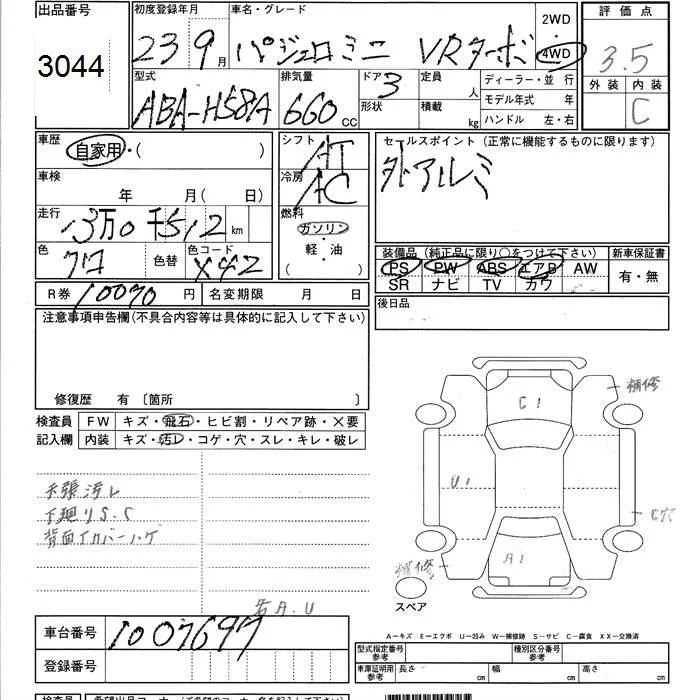 出品番号
3044
初度登録年月
23 9月
車名・グレード
パジェロミニ VRターボ
2WD
4WD
評価点
3.5
外装 内装
C
型式
ABA-H58A
排気量
660 CC
ドア
3
形状
定員
人
積載
kg
ディーラー・並行
モデル年式 年
ハンドル 左・右
車歴
自家用・( )
車検
年 月( 日)
走行
13万0千512km
色
クロ
色替
色コード
X42
R券 10070円
名変期限 月 日
シフト
AT
冷房
AC
燃料
ガソリン
・軽・油
( )
セールスポイント(正常に機能するものに限ります)
外アルミ
装備品(純正品に限り〇をつけて下さい)
PS PW ABS エアB AW
SR ナビ TV カワ
新車保証書
有・無
後日品
注意事項申告欄(不具合内容等は具体的に記入して下さい)
修復歴 有〔箇所 〕
検査員
記入欄
FW キズ・飛石・ヒビ割・リペア跡・×要
内装 キズ・汚レ・コゲ・穴・スレ・キレ・破レ
天張汚レ
下廻りS.C
背面
右A.U
補修
C1
U1
C穴
A1
補修
スペア
車台番号
1007697
登録番号
A-キズ E-エクボ U-凹み W-補修跡 S-サビ C-腐食 XX-交換済
型式指定番号
参考
種別区分番号
参考
車庫証明用
参考
長さ cm
幅 cm
高さ cm
検査員